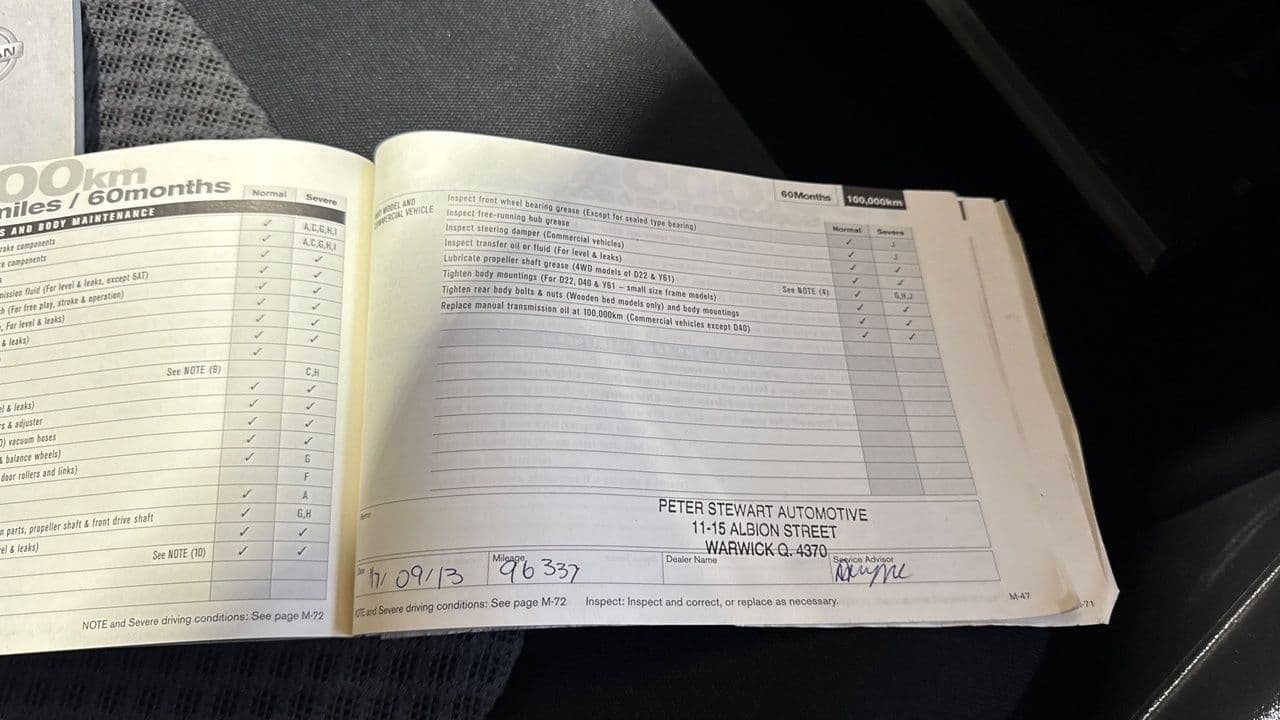 AN
00km
miles / 60months
Normal Severe
S AND BODY MAINTENANCE
rake components ✓ A,C,G,H,I
e components ✓ A,C,G,H,I
✓ ✓
mission fluid (For level & leaks, except 6AT) ✓ ✓
h (For free play, stroke & operation) ✓ ✓
, For level & leaks) ✓ ✓
& leaks) ✓ ✓
✓ ✓
✓
See NOTE (9) C,H
✓ ✓
el & leaks) ✓ ✓
rs & adjuster ✓ ✓
) vacuum hoses ✓ ✓
& balance wheels) ✓ G
door rollers and links) F
✓ A
✓ G,H
n parts, propeller shaft & front drive shaft ✓ ✓
el & leaks) See NOTE (10) ✓ ✓
NOTE and Severe driving conditions: See page M-72
60Months 100,000km
MODEL AND
COMMERCIAL VEHICLE
Normal Severe
Inspect front wheel bearing grease (Except for sealed type bearing) ✓ J
Inspect free-running hub grease ✓ J
Inspect steering damper (Commercial vehicles) ✓ ✓
Inspect transfer oil or fluid (For level & leaks) ✓ ✓
Lubricate propeller shaft grease (4WD models of D22 & Y61) See NOTE (4) ✓ G,H,J
Tighten body mountings (For D22, D40 & Y61 – small size frame models) ✓ ✓
Tighten rear body bolts & nuts (Wooden bed models only) and body mountings ✓ ✓
Replace manual transmission oil at 100,000km (Commercial vehicles except D40) ✓ ✓
PETER STEWART AUTOMOTIVE
11-15 ALBION STREET
WARWICK Q. 4370
Mileage Dealer Name Service Advisor
09/13 96 337
NOTE and Severe driving conditions: See page M-72 Inspect: Inspect and correct, or replace as necessary.
M-47
-71